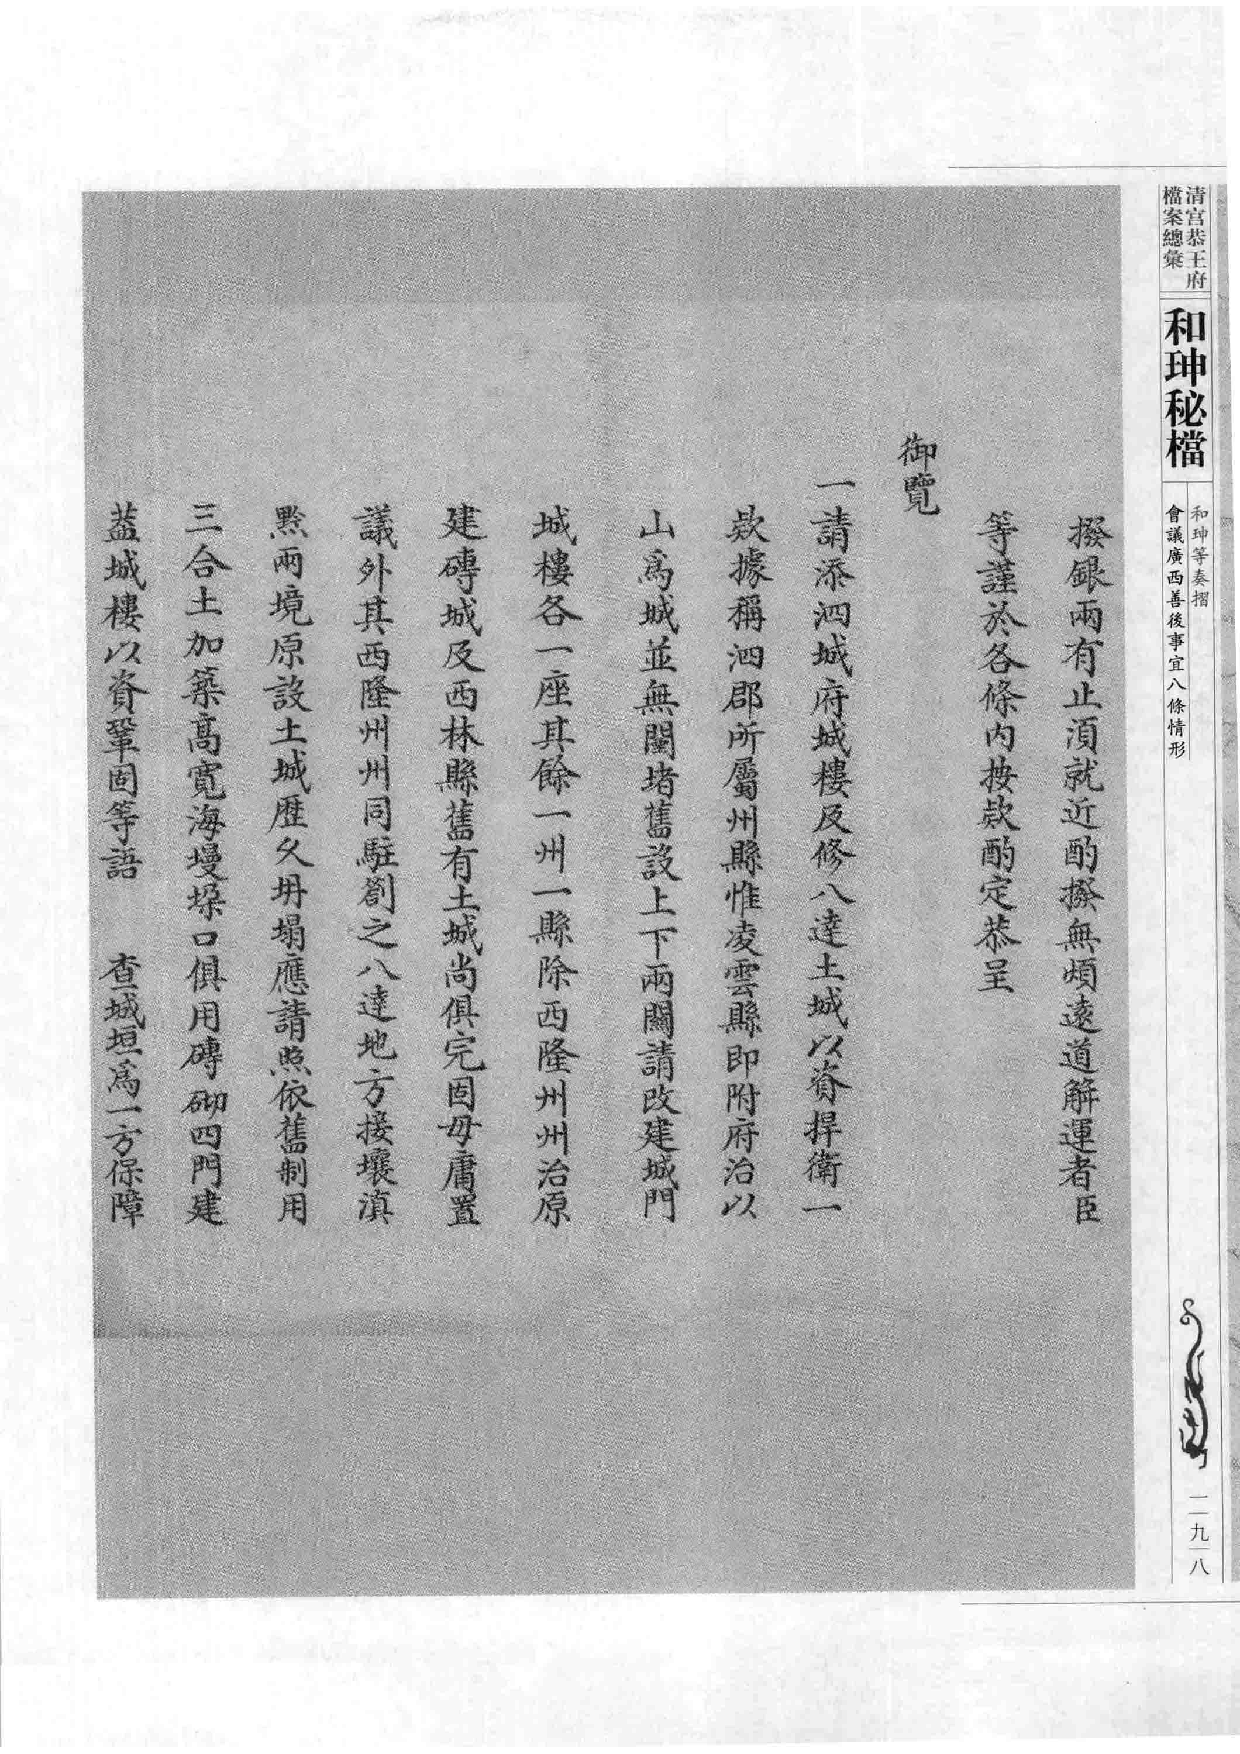 清宫恭王府
檔案總彙
和珅秘檔
和珅等奏摺
會議廣西善後事宜八條情形
撥銀兩有止須就近酌撥無煩遠道解運者臣
等謹於各條内按欵酌定恭呈
御覽
一請添泗城府城樓及修八達土城以資捍衛一
欵據稱泗郡所屬州縣惟凌雲縣即附府治以
山爲城並無闉堵舊設上下兩關請改建城門
城樓各一座其餘一州一縣除西隆州州治原
建磚城及西林縣舊有土城尚俱完固毋庸置
議外其西隆州州同駐劄之八達地方接壤滇
黔兩境原設土城歷久坍塌應請照依舊制用
三合土加築高寬海墁垜口俱用磚砌四門建
葢城樓以資鞏固等語 查城垣爲一方保障
二九八